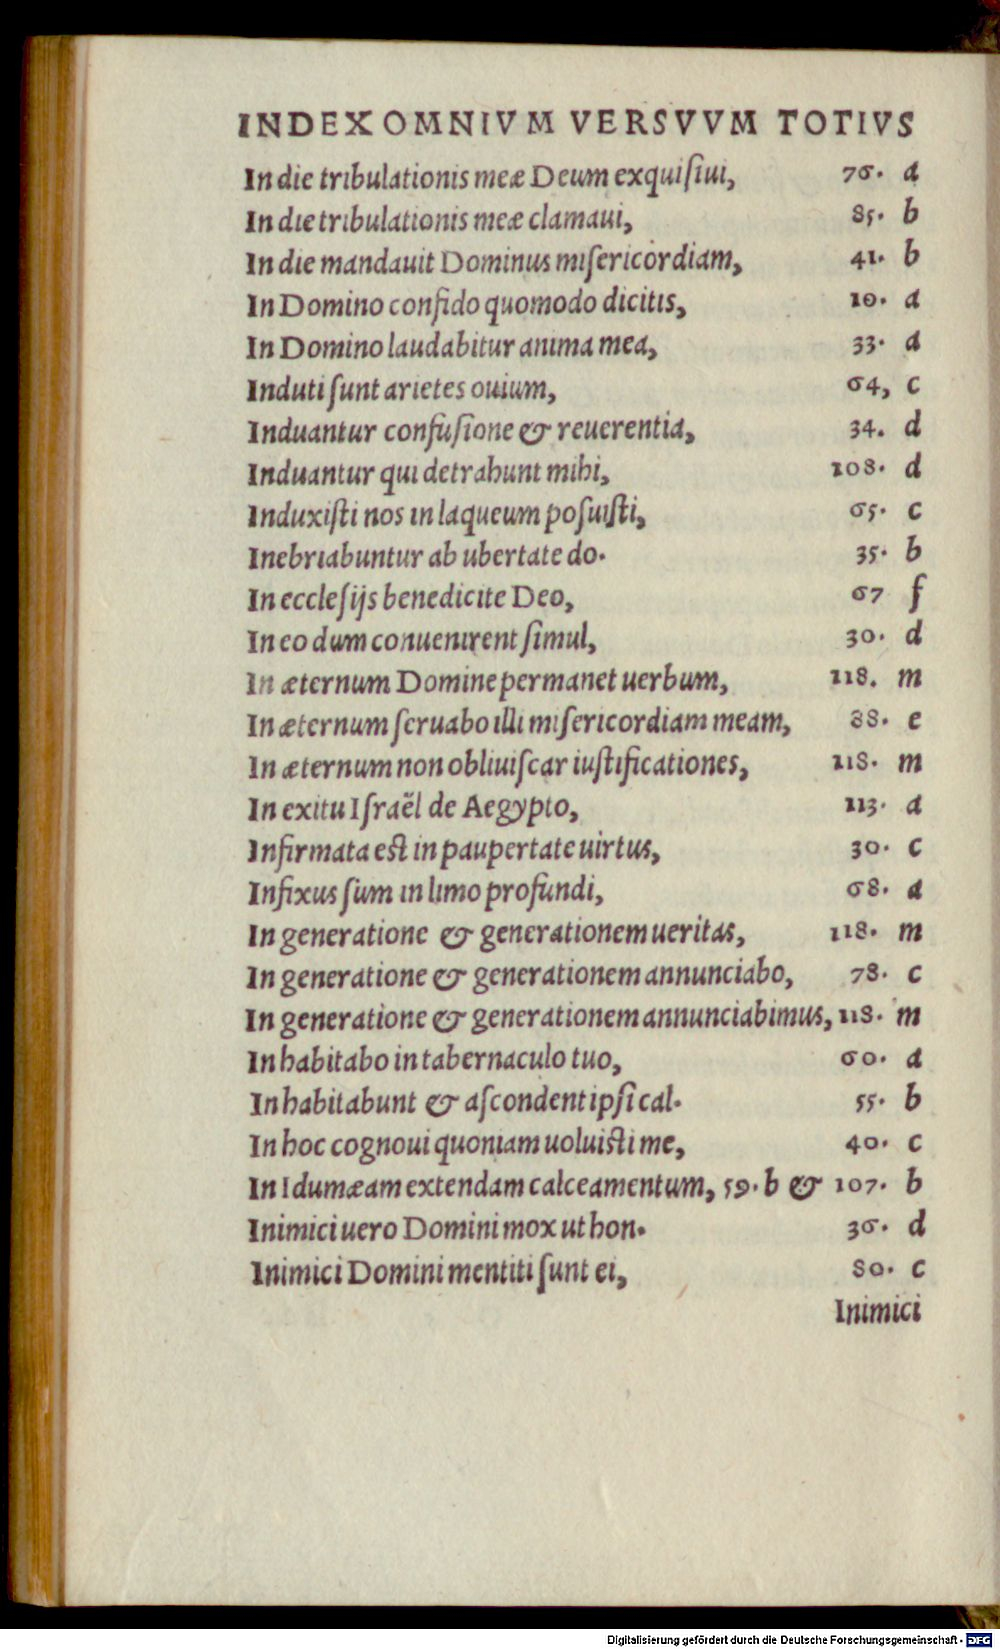 INDEX OMNIVM VERSVVM TOTIVS
In die tribulationis meæ Deum exquiſiui, 76. a
In die tribulationis meæ clamaui, 85. b
In die mandauit Dominus miſericordiam, 41. b
In Domino confido quomodo dicitis, 10. a
In Domino laudabitur anima mea, 33. a
Induti ſunt arietes ouium, 64, c
Induantur confuſione & reuerentia, 34. d
Induantur qui detrahunt mihi, 108. d
Induxiſti nos in laqueum poſuiſti, 65. c
Inebriabuntur ab ubertate do. 35. b
In eccleſijs benedicite Deo, 67 f
In eo dum conuenirent ſimul, 30. d
In æternum Domine permanet uerbum, 118. m
In æternum ſeruabo illi miſericordiam meam, 88. e
In æternum non obliuiſcar iuſtificationes, 118. m
In exitu Iſraël de Aegypto, 113. a
Infirmata eſt in paupertate uirtus, 30. c
Infixus ſum in limo profundi, 68. a
In generatione & generationem ueritas, 118. m
In generatione & generationem annunciabo, 78. c
In generatione & generationem annunciabimus, 118. m
Inhabitabo in tabernaculo tuo, 60. a
Inhabitabunt & aſcondent ipſi cal. 55. b
In hoc cognoui quoniam uoluiſti me, 40. c
In Idumæam extendam calceamentum, 59. b & 107. b
Inimici uero Domini mox ut hon. 36. d
Inimici Domini mentiti ſunt ei, 80. c
Inimici
Digitalisierung gefördert durch die Deutsche Forschungsgemeinschaft - DFG